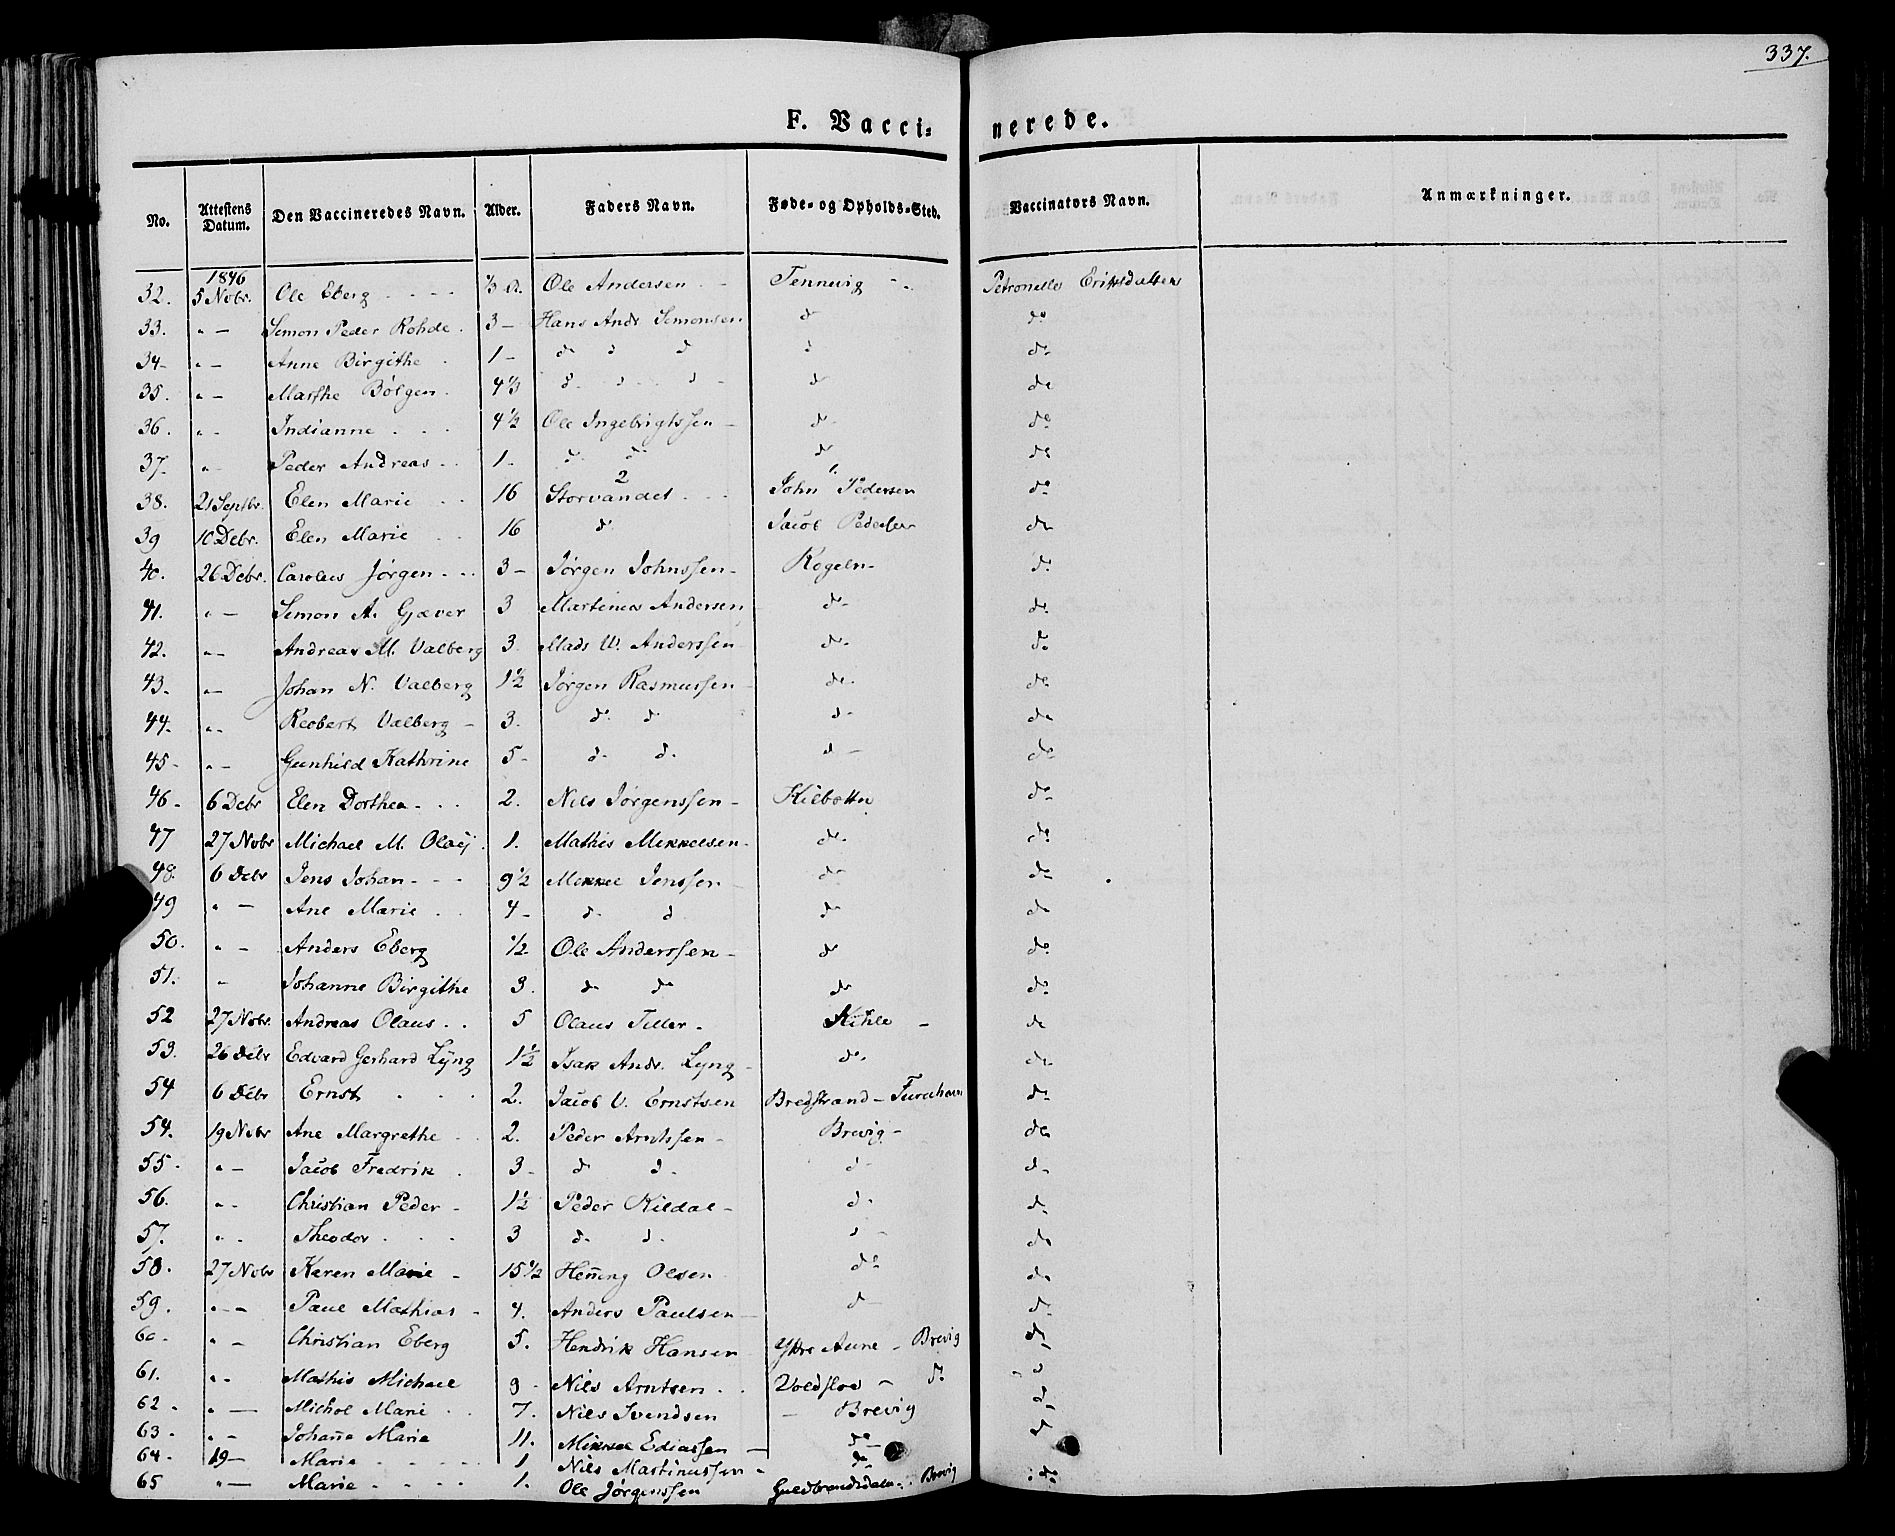 337.
F. Vaccinerede.
No. Attestens Datum. Den Vaccineredes Navn. Alder. Faders Navn. Føde- og Opholds-Sted. Vaccinators Navn. Anmærkninger.
1846
32. 5 Nobr. Ole Eberg - - - - ⅓ A. Ole Andersen - - Tennevig - - Petronelle Eriksdatter
33. " — Semon Peder Rohde . 3 - Hans Andr Semonsen do do
34 - " — Anne Birgithe . 1 - do do do do do
35. " — Marthe Bolgen . 4⅓ do do do do do
36. " - Indianne . . . 4½ Ole Ingebrigtssen - do do
37. " - Peder Andreas . . 1. do do do do
38. 21 Septbr. Elen Marie . . 16 2 Storvandet . . . 1. John Pedersen do
39 10 Debr. Elen Marie . . 16 do Jacob Pedersen do
40. 26 Debr. Carolus Jørgen - - . 3 - Jørgen Johnssen - Rogeln - do
41. " — Semon A. Gjæver 3 Martinus Andersen do do
42. " — Andreas M. Valberg 3. Mads W. Anderssen do do
43. " — Johan N. Valberg 1½ Jørgen Rasmussen do do
44. " - Reobert Valberg - 3. do do do do
45 - " — Gunhild Kathrine 5 - do do do do
46 - 6 Debr Elen Dorthea - . . 2. Nils Jørgenssen - Kilbottn do
47 27 Nobr Michael M. Olaij . 1. Mathis Mikkelsen - do do
48. 6 Debr Jens Johan - - - 9½ Mikkel Jenssen do do
49 " — Ane Marie . . 4 - do do do do
50. " — Anders Eberg ½ Ole Anderssen - do do
51. " Johanne Birgithe 3. do do do do
52 27 Nobr. Andreas Olaus . . 5 Olaus Tiller - Kihle - do
53. 26 Debr Edvard Gerhard Lyng 1½ Isak Andr. Lyng - do do
54 6 Debr Ernst . . . 2. Jacob V. Ernstsen Bredstrand - do
54. 19 Nobr Ane Margrethe . . 2. Peder Arntssen - Brevig - do
55. " — Jacob Fredrik . 3 - do do do do
56. " - Christian Peder - 1½ Peder Kildal - do do
57. " - Theodor . . . 3 do do do do
58. 27 Nobr Karen Marie - 15½ Heñing Olsen do do
59. " — Paul Mathias - 4. Anders Paulsen - do do
60 - " — Christian Eberg 5. Hendrik Hansen Yttre Aune - Brevig do
61. " - Mathis Michael 9 - Nils Arntsen . . - do do
62. " — Michol Marie . . 7. Nils Svendsen - Brevig do
63. " — Johañe Marie 11. Mikkel Ediassen - do do
64 - 19 — Marie - - - - - 1 Nils Martinussen - do
65 " — Marie . . . . 1. Ole Jørgenssen Guldbrandsdalen . Brevig do